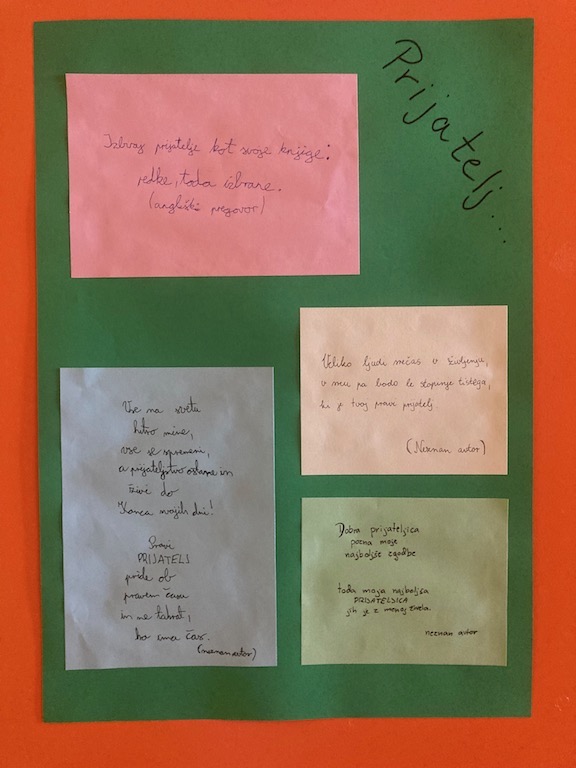 Prijatelj...
Izbiraj prijatelje kot svoje knjige:
redke, toda izbrane.
(angleški pregovor)
Veliko ljudi srečaš v življenju,
v srcu pa bodo le stopinje tistega,
ki je tvoj pravi prijatelj
(Neznan avtor)
Vse na svetu
hitro mine,
vse se spremeni,
a prijateljstvo ostane in
živi do
Konca svojih dni!
Pravi
PRIJATELJ
pride ob
pravem času
in ne takrat,
ko ima čas.
(neznan avtor)
Dobra prijateljica
pozna moje
najboljše zgodbe
toda moja najboljša
PRIJATELJICA
jih je z menoj živela.
neznan avtor